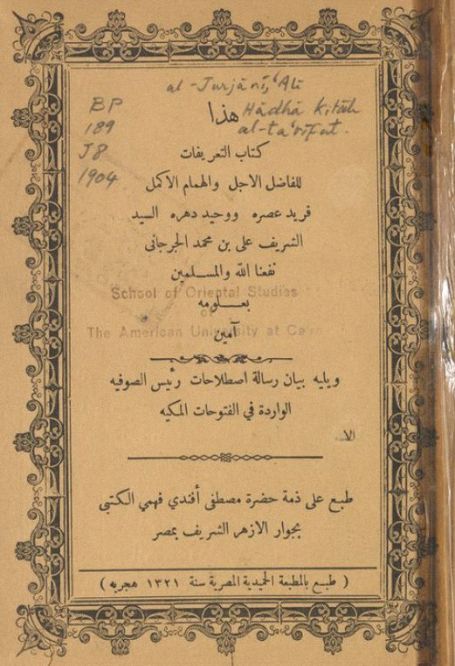 al-Jurjānī, ʿAlī
BP
189
J8
1904
هذا
Hādhā kitāb
al-taʿrīfāt.
كتاب التعريفات
للفاضل الاجل والهمام الاكمل
فريد عصره ووحيد دهره السيد
الشريف على بن محمد الجرجانى
نفعنا الله والمسلمين
School of Oriental Studies
of
بعلومه
The American University at Ca
آمين
ويليه بيان رسالة اصطلاحات رئيس الصوفيه
الواردة في الفتوحات المكيه
طبع على ذمة حضرة مصطفى أفندي فهمي الكتبي
بجوار الازهر الشريف بمصر
( طبع بالمطبعة الحميدية المصرية سنة ١٣٢١ هجريه )